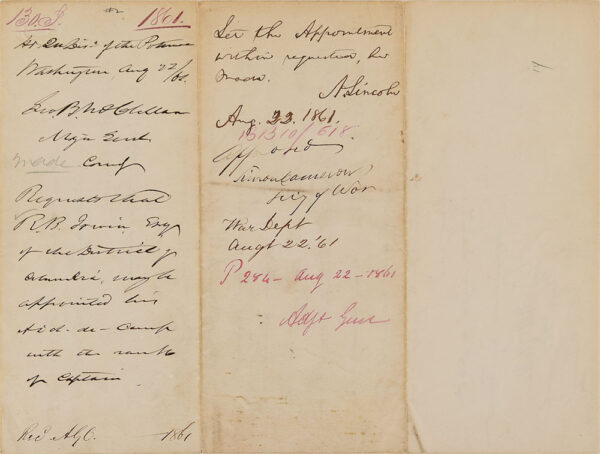 130. J. 1861.
Hd Qu Div. of the Potomac
Washington Aug 22/61.
Geo B. McClellan
Maj Genl
Made Comg
Requests that
R. B. Irwin Esq
of the District of
Columbia, may be
appointed his
Aid-de-Camp
with the rank
of Captain
Recd A.G.O. 1861
Let the Appointment
within requested, be
made.
A. Lincoln
Aug. 22. 1861.
Simon Cameron
Secy of War
War Dept
Augt 22. '61
P 284 - Aug 22 - 1861
Adjt Genl